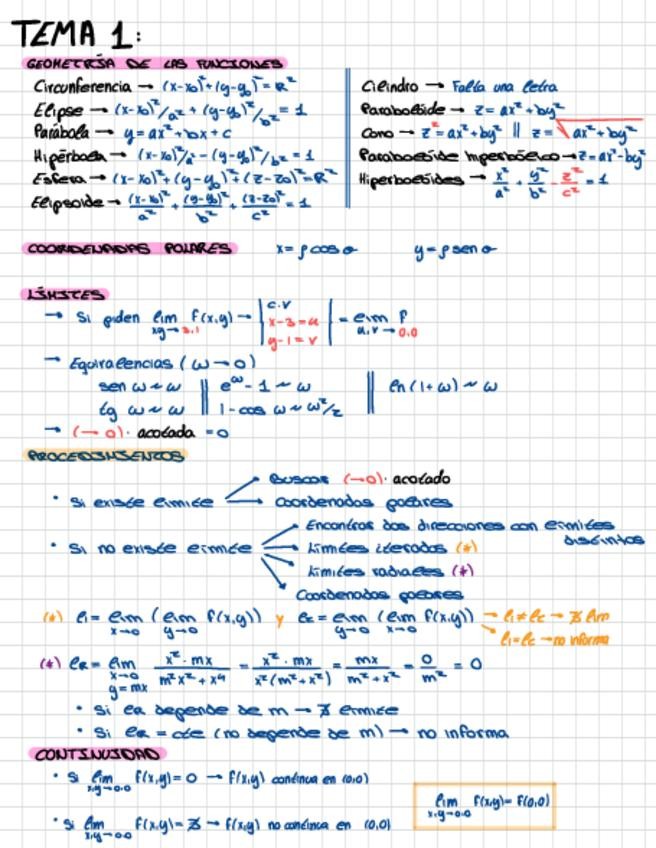 TEMA 1:
GEOMETRÍA DE LAS FUNCIONES
Circunferencia → (x-x₀)²+(y-y₀)²=R²
Elipse → (x-x₀)²/a² + (y-y₀)²/b² = 1
Parábola → y=ax²+bx+c
Hipérbola → (x-x₀)²/a² - (y-y₀)²/b² = 1
Esfera → (x-x₀)²+(y-y₀)²+(z-z₀)²=R²
Elipsoide → (x-x₀)²/a² + (y-y₀)²/b² + (z-z₀)²/c² = 1
Cilindro → Falta una letra
Paraboloide → z=ax²+by²
Cono → z²=ax²+by² || z=√ax²+by²
Paraboloide hiperbólico → z=ax²-by²
Hiperboloides → x²/a² + y²/b² - z²/c² = 1
COORDENADAS POLARES x=ρcosθ y=ρsenθ
LÍMITES
→ Si piden lim xy→3,1 f(x,y) → | c.v x-3=u y-1=v | = lim u,v→0,0 f
→ Equivalencias (ω→0)
sen ω ~ ω || e^ω - 1 ~ ω || ln(1+ω) ~ ω
tg ω ~ ω || 1-cos ω ~ ω²/2
→ (→0)· acotada = 0
PROCEDIMIENTOS
· Si existe límite
Buscar (→0)· acotado
Coordenadas polares
· Si no existe límite
Encontrar dos direcciones con límites distintos
Límites iterados (*)
Límites radiales (*)
Coordenadas polares
(*) l₁ = lim x→0 (lim y→0 f(x,y)) y l₂ = lim y→0 (lim x→0 f(x,y)) → l₁≠l₂ → ∄ lim
→ l₁=l₂ → no informa
(*) lR = lim x→0 y=mx x²·mx/m²x²+x⁴ = x²·mx/x²(m²+x²) = mx/m²+x² = 0/m² = 0
· Si lR depende de m → ∄ límite
· Si lR = cte (no depende de m) → no informa
CONTINUIDAD
· Si lim x,y→0,0 f(x,y)=0 → f(x,y) continua en (0,0)
lim x,y→0,0 f(x,y)=f(0,0)
· Si lim x,y→0,0 f(x,y)=∄ → f(x,y) no continua en (0,0)